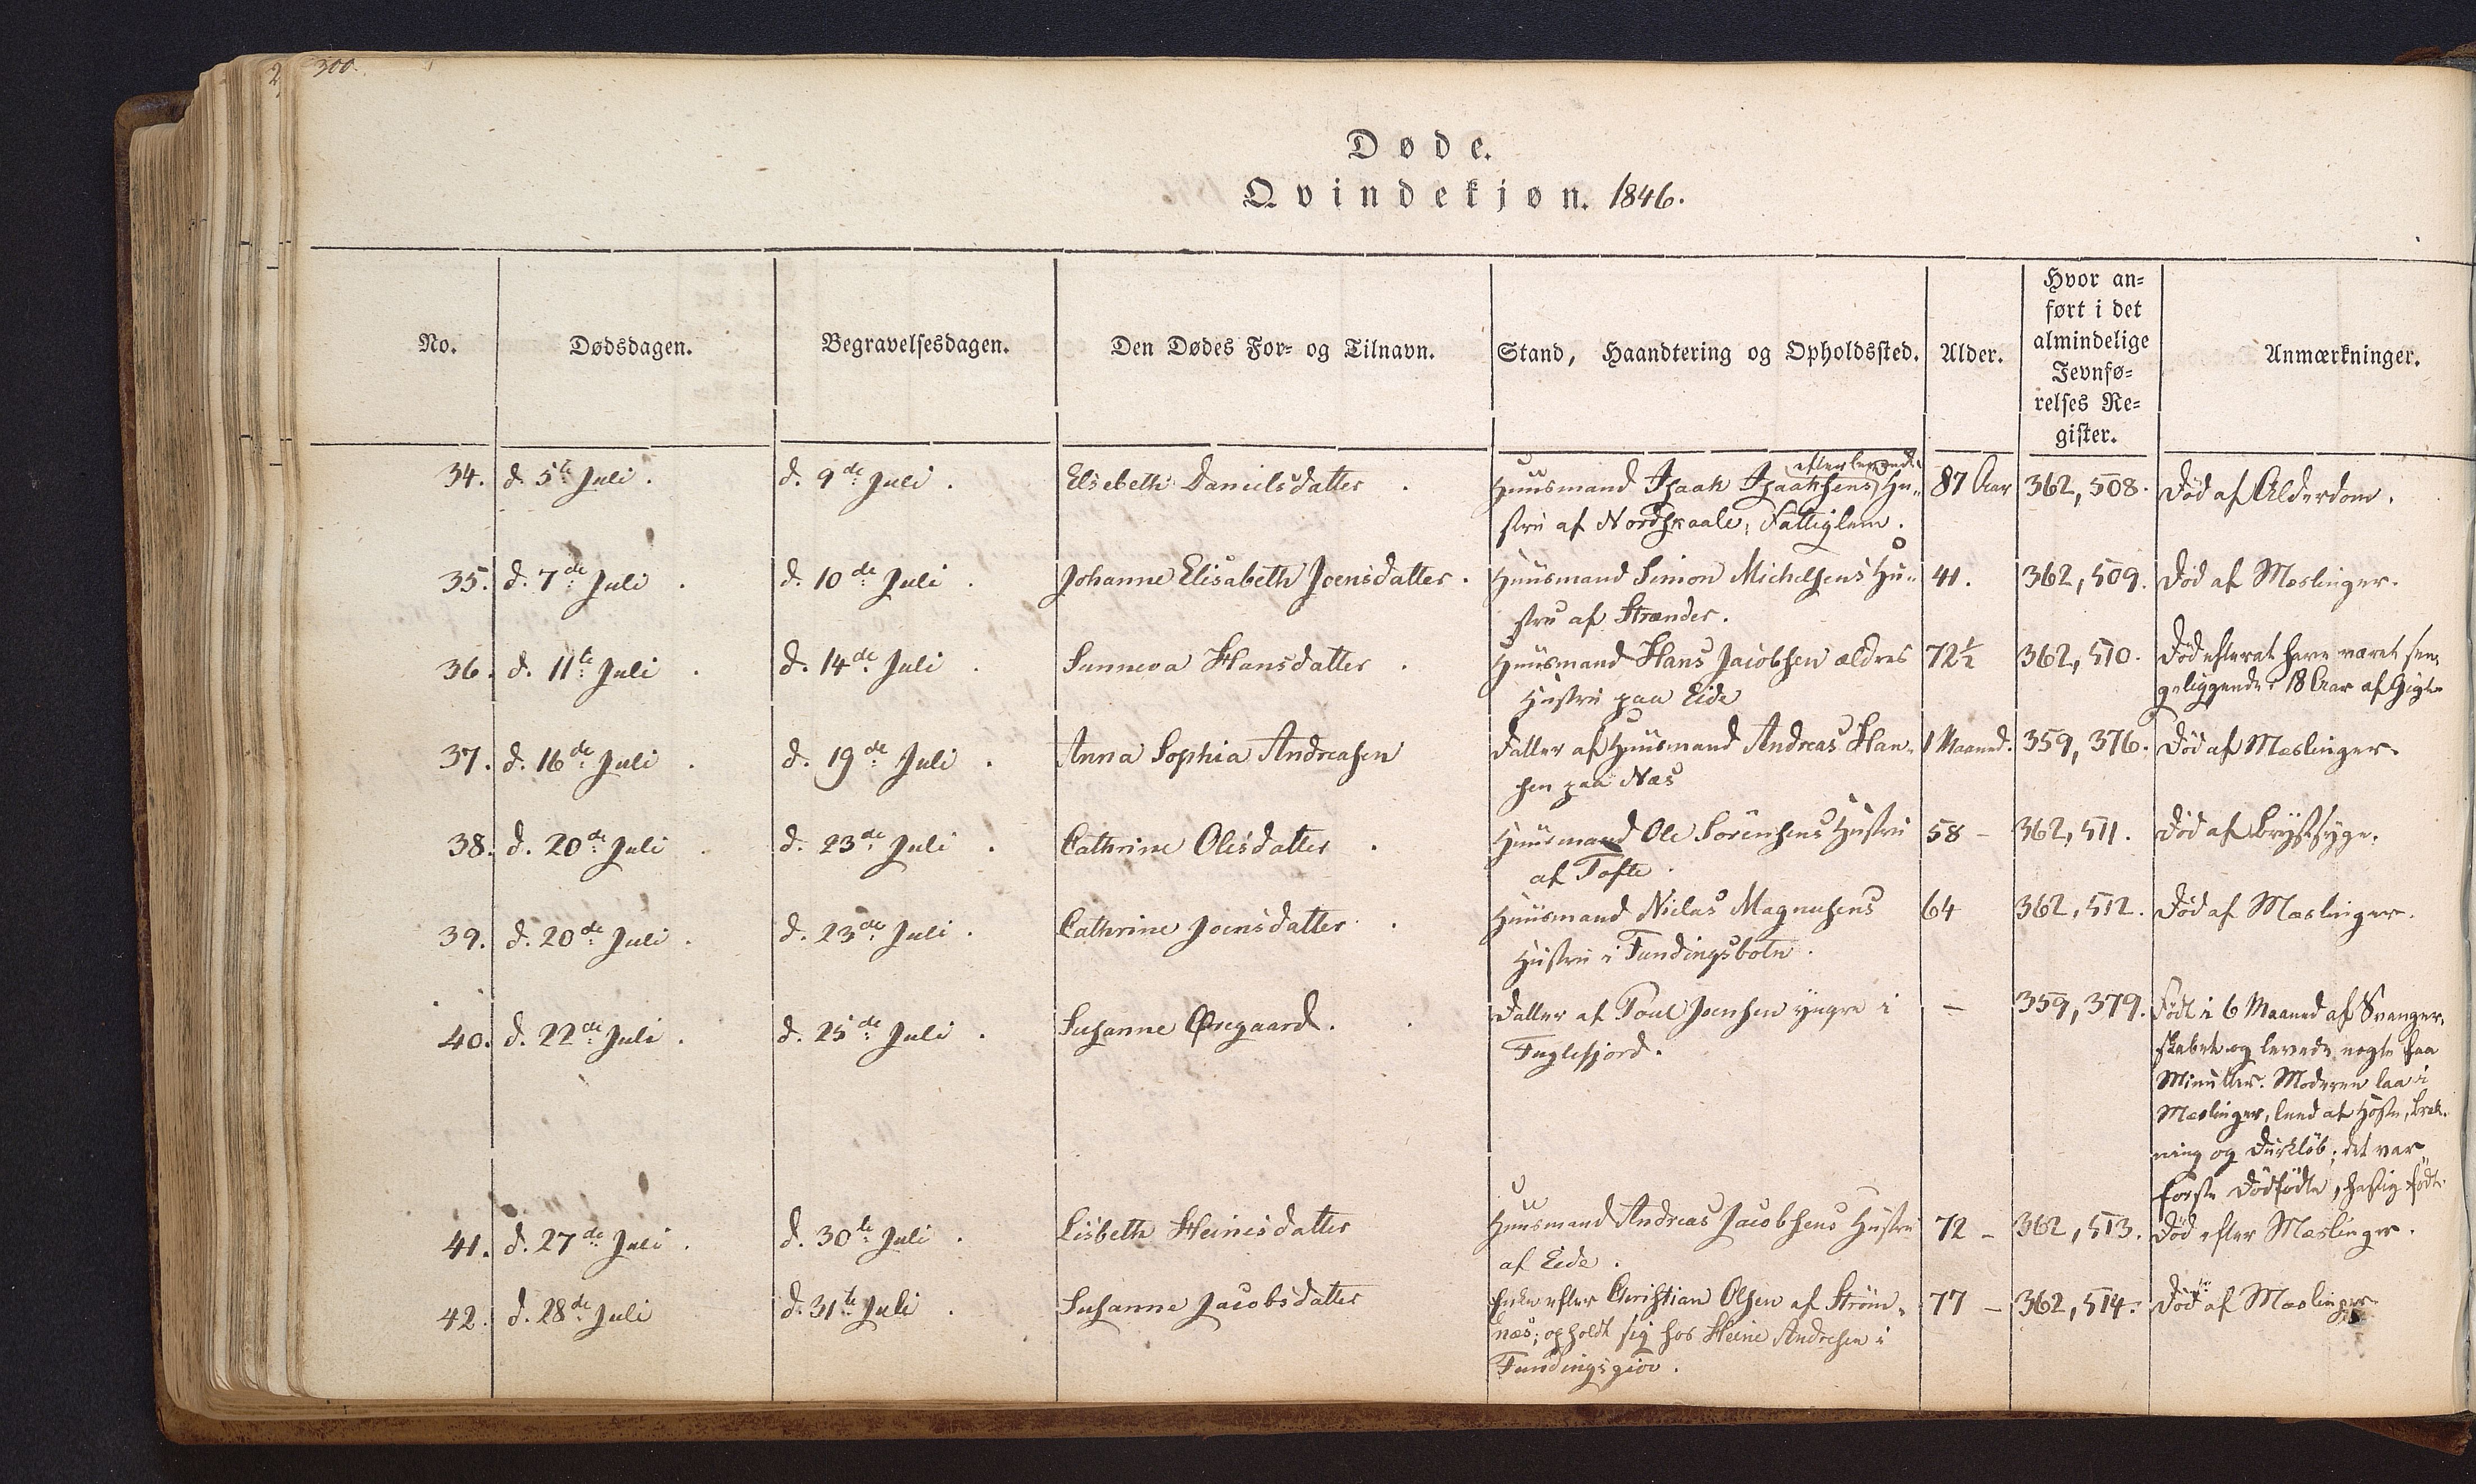 300.
2
Døde.
Qvindekjøn. 1846.
No.
Dødsdagen.
Begravelsesdagen.
Den Dødes For- og Tilnavn.
Stand, Haandtering og Opholdssted.
Alder.
Hvor an-
ført i det
almindelige
Jevnfø-
relses Re-
gister.
Anmærkninger.
34. d. 5te Juli. d. 9de Juli. Elsebeth Danielsdatter. Huusmand Isaak Isaaksens efterlevende Hu- 87 Aar 362, 508. Død af Alderdom.
stru af Nordskaale, Fattiglem.
35. d. 7de Juli. d. 10de Juli. Johanne Elisabeth Joensdatter. Huusmand Simon Michelsens Hu- 41. 362, 509. Død af Mæslinger.
stru af Strænder.
36. d. 11te Juli. d. 14de Juli. Sunneva Hansdatter. Huusmand Hans Jacobsen ældres 72½ 362, 510. Død efterat have været sen-
Hustru paa Eide geliggende i 18 Aar af Gigt
37. d. 16de Juli. d. 19de Juli. Anna Sophia Andreasen Datter af Huusmand Andreas Han- 1 Maaned. 359, 376. Død af Mæslinger.
sen paa Næs
38. d. 20de Juli. d. 23de Juli. Cathrine Olesdatter. Huusmand Ole Sørensens Hustru 58 - 362, 511. Død af Brystsyge.
af Tofte.
39. d. 20de Juli. d. 23de Juli. Cathrine Joensdatter. Huusmand Niclas Magnusens 64 362, 512. Død af Mæslinger.
Hustru i Fundingsbotn.
40. d. 22de Juli. d. 25de Juli. Susanne Øregaard. Datter af Poul Joensen yngre i - 359, 379. Født i 6 Maaned af Svanger-
Fuglefjord. skabet og levede nogle faa
Minutter. Moderen laa i
Mæslinger, leed af Hoste, Bræk-
ning og Durkløb; det var
første Dødfødte,
41. d. 27de Juli. d. 30te Juli. Lisbeth Heinesdatter Huusmand Andreas Jacobsens Hustru 72 - 362, 513. Død efter Mæslinger.
af Eide.
42. d. 28de Juli d. 31te Juli. Susanne Jacobsdatter Enke efter Christian Olsen af Strøm- 77 - 362, 514. Død af Mæslinger
næs; opholdt sig hos Heine Andresen i
Fundingsgiov.